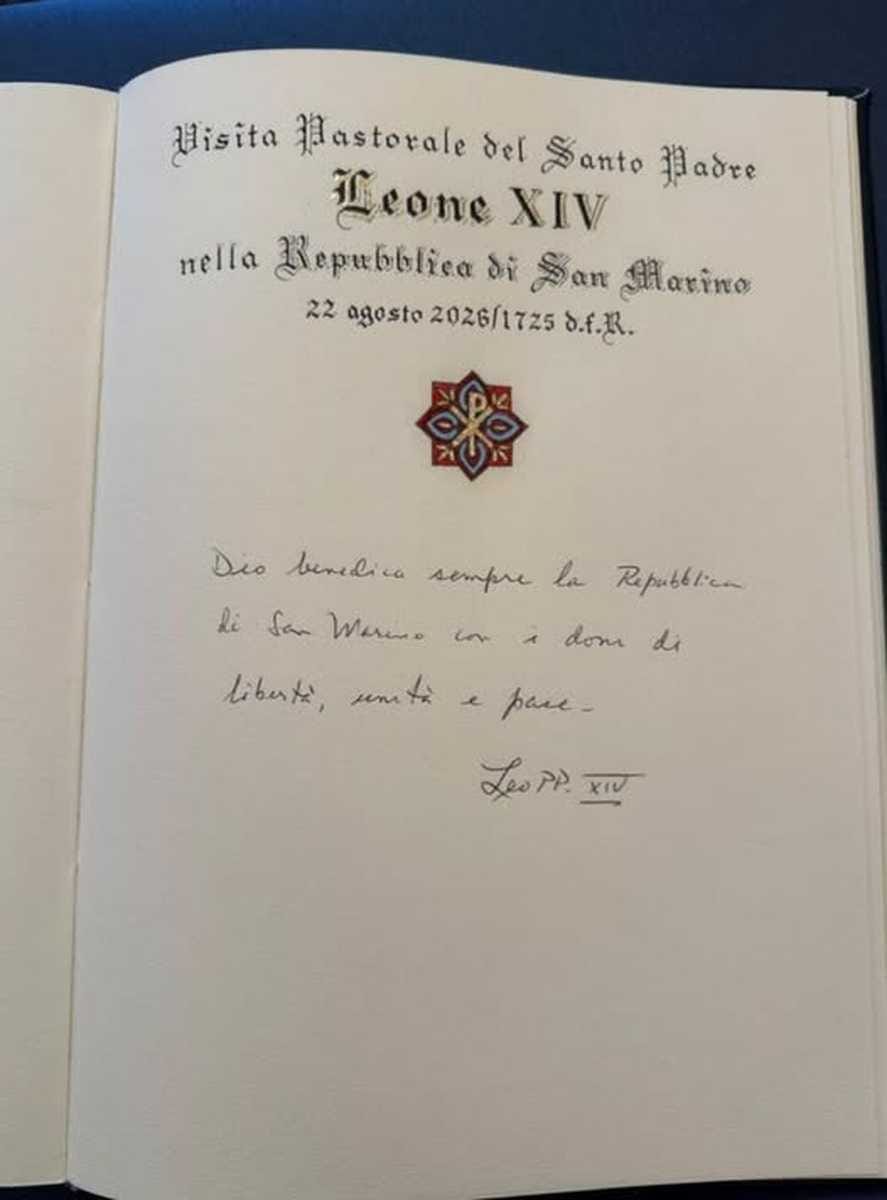 Visita Pastorale del Santo Padre
Leone XIV
nella Repubblica di San Marino
22 agosto 2026/1725 d.f.R.
Dio benedica sempre la Repubblica
di San Marino con i doni di
libertà, unità e pace -
Leo PP. XIV